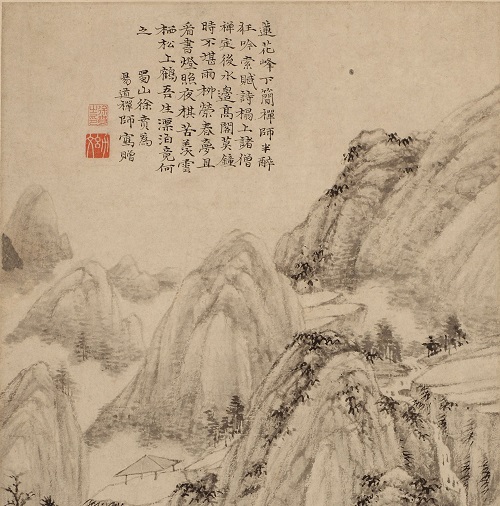 蓮花峰下簡禪師半醉
狂吟索賦詩榻上諸僧
禪定後水邊高閣莫鐘
時不堪雨柳縈春夢且
看書燈照夜棋苦羨雲
栖松上鶴吾生漂泊竟何
之
蜀山徐賁為
易道禪師寫贈